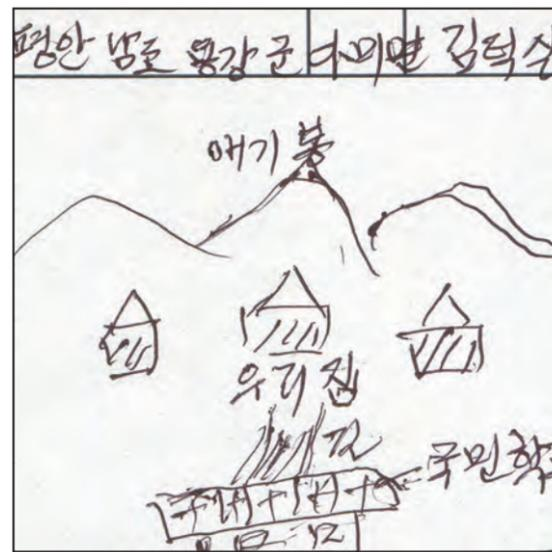 평안 남도 용강군 다미면 김덕
애기봉
우리집
길
국민학